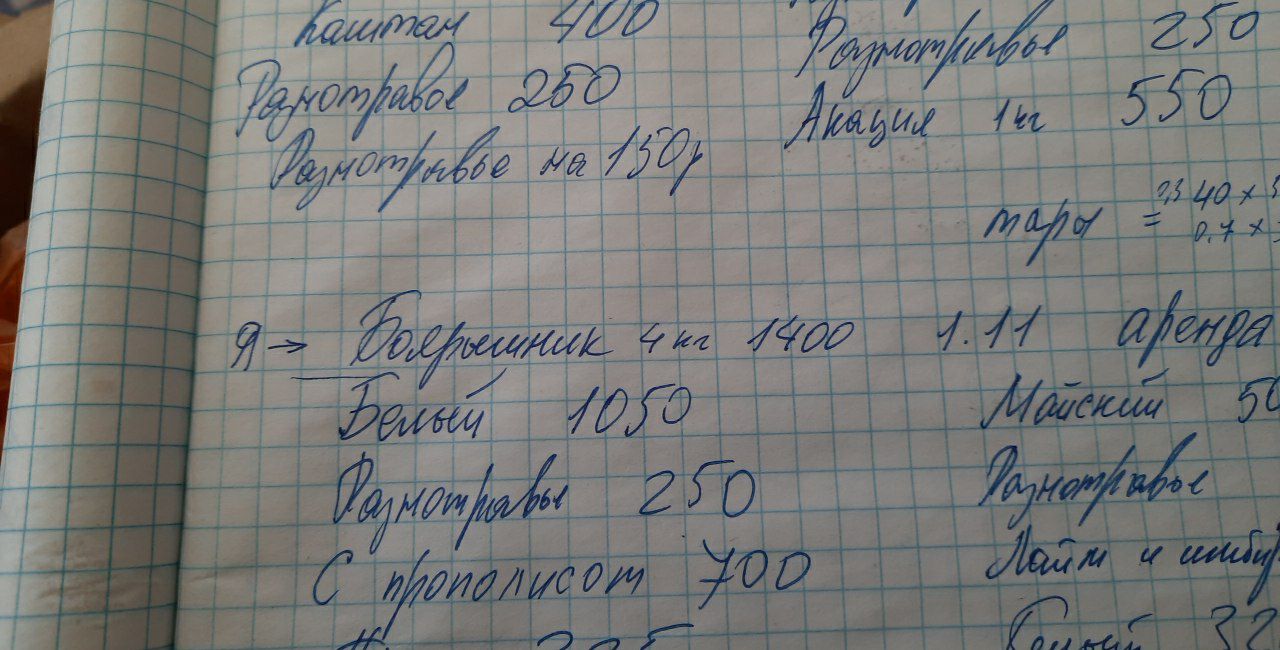 Каштан 400
Разнотравье 250
Разнотравье на 150р
Разнотравье 250
Акация 1кг 550
тары = 40 х
0,7 х
Я → Боярышник 4кг 1400
Белый 1050
Разнотравье 250
С прополисот 700
1.11 аренда
Майский 50
Разнотравье
Лайм и имбир
Белый 32